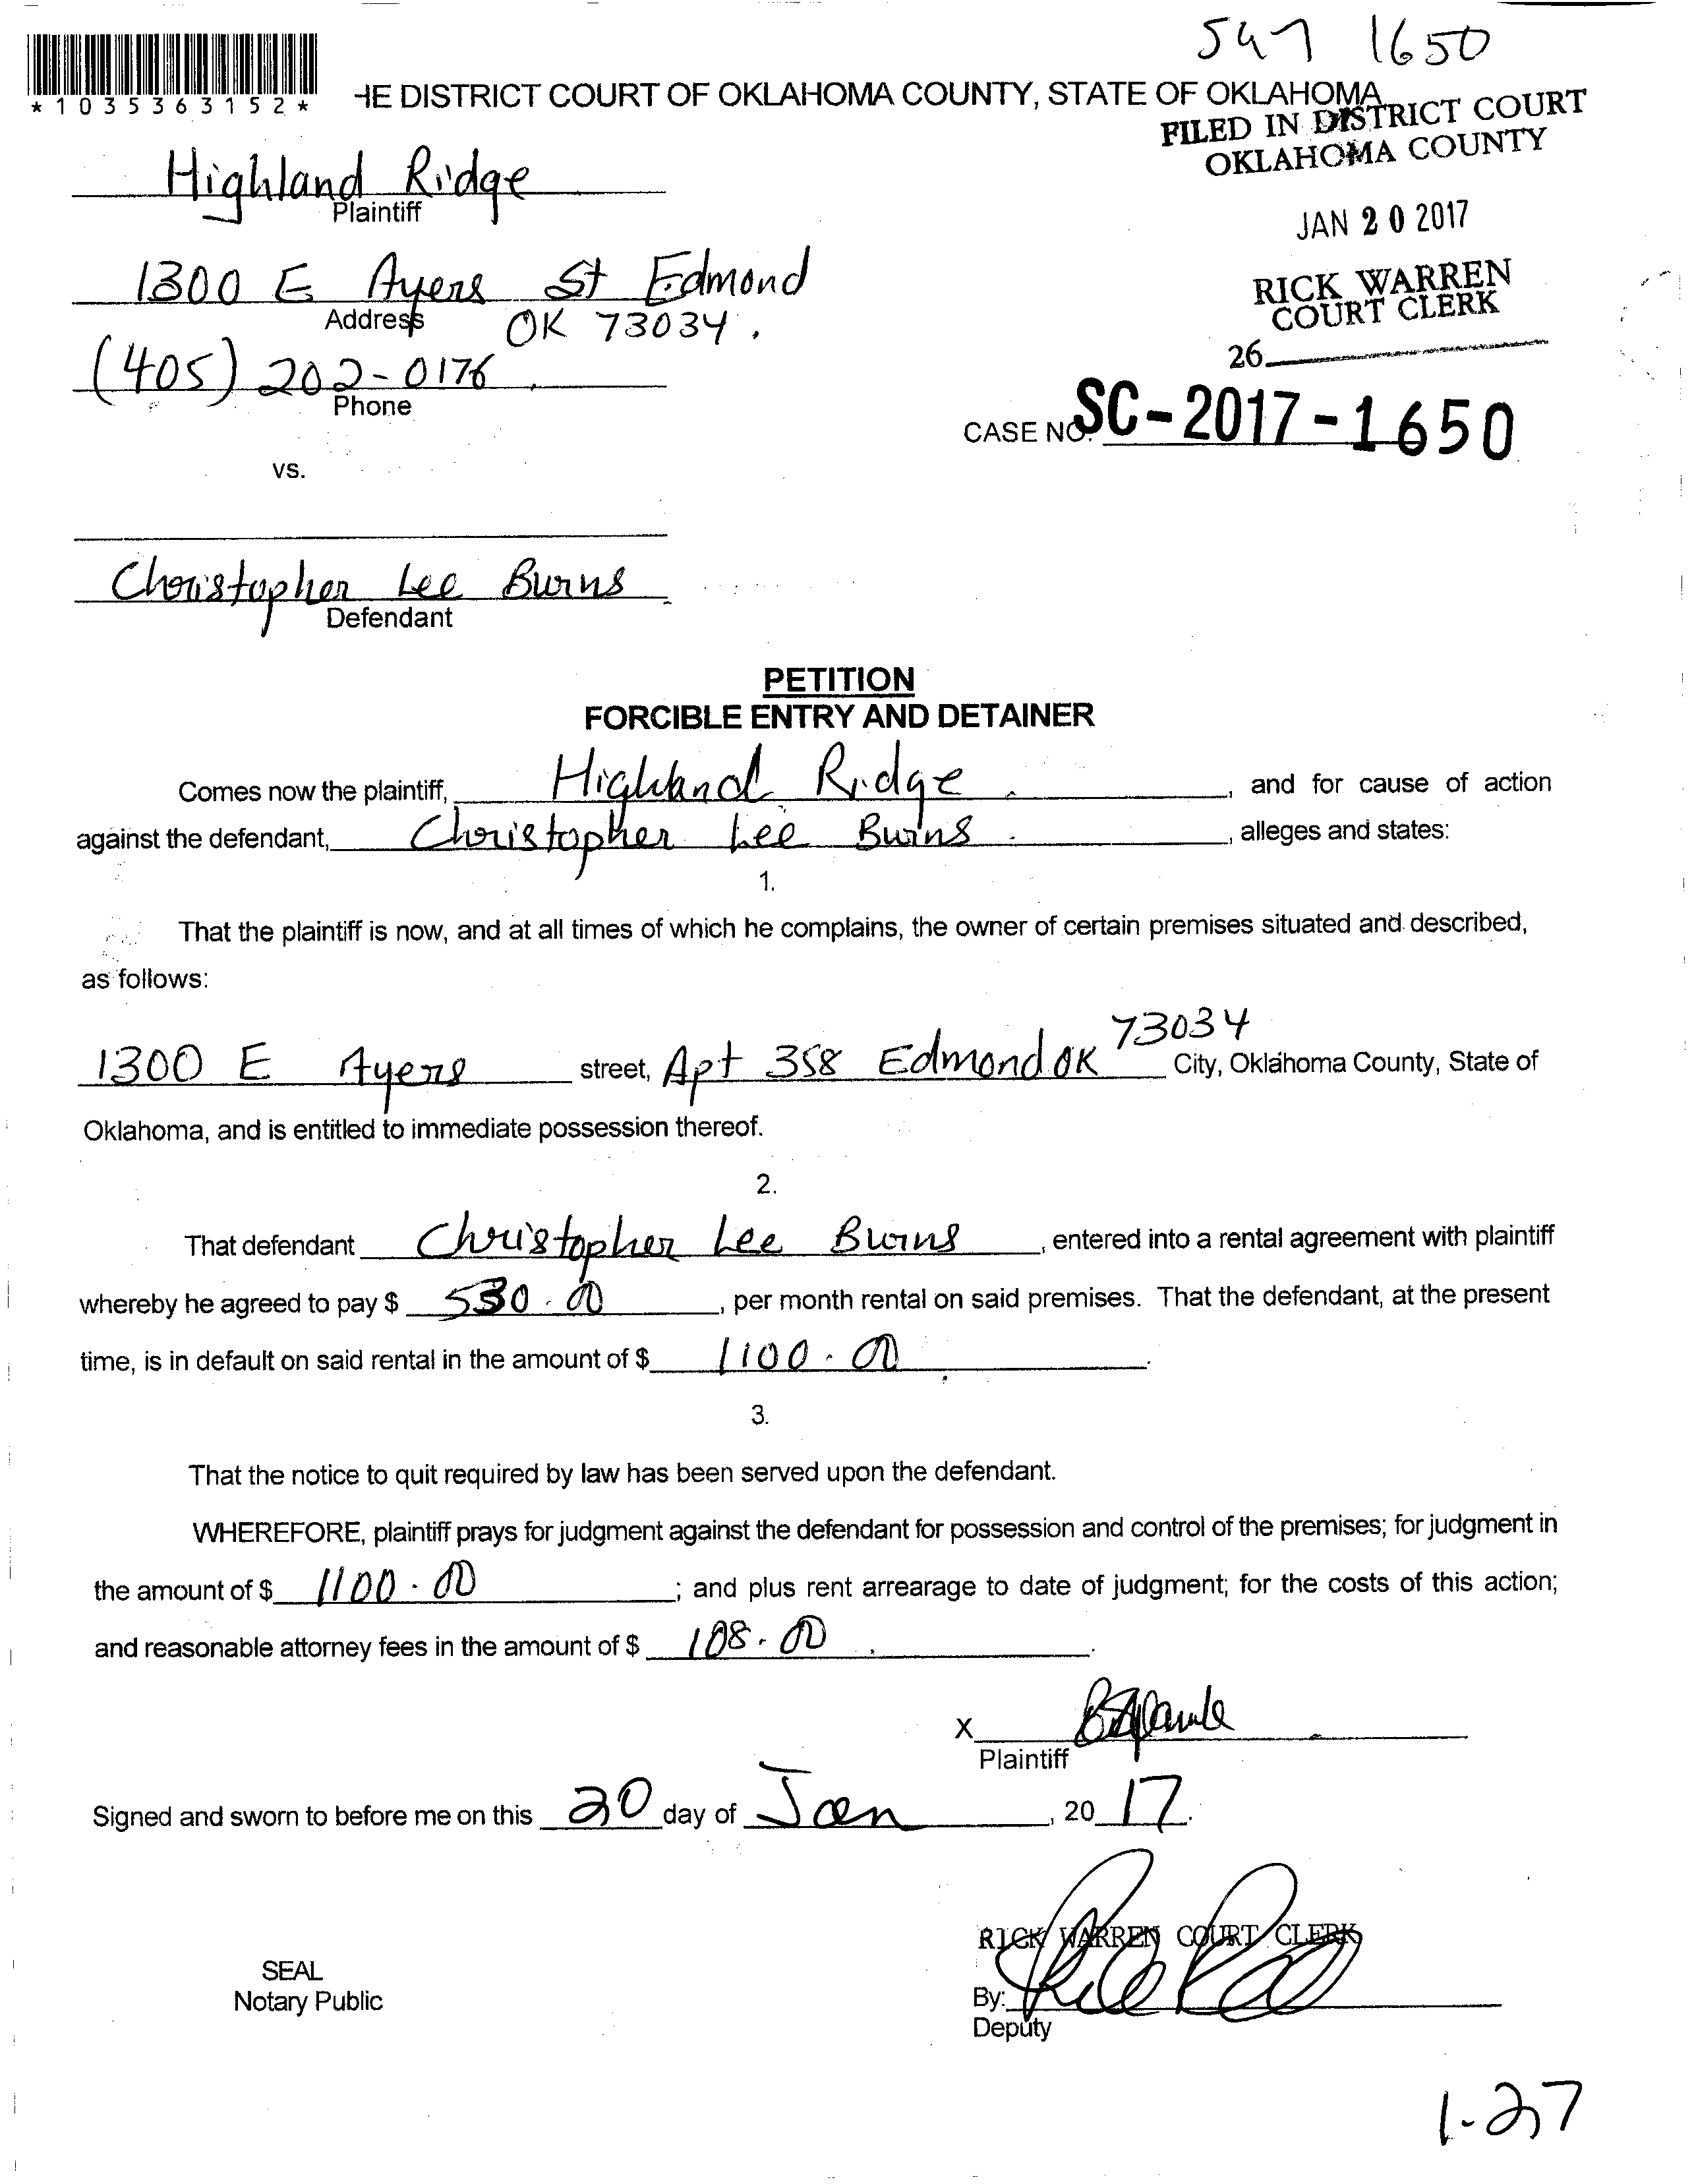 547 1650
*1035363152*
HE DISTRICT COURT OF OKLAHOMA COUNTY, STATE OF OKLAHOMA
FILED IN DISTRICT COURT
OKLAHOMA COUNTY
JAN 20 2017
RICK WARREN
COURT CLERK
26
Highland Ridge
Plaintiff
1300 E Ayers St Edmond
Address OK 73034.
(405) 202-0176
Phone
CASE NO. SC-2017-1650
vs.
Christopher Lee Burns
Defendant
PETITION
FORCIBLE ENTRY AND DETAINER
Comes now the plaintiff, Highland Ridge, and for cause of action
against the defendant, Christopher Lee Burns, alleges and states:
1.
That the plaintiff is now, and at all times of which he complains, the owner of certain premises situated and described,
as follows:
73034
1300 E Ayers street, Apt 358 Edmond OK City, Oklahoma County, State of
Oklahoma, and is entitled to immediate possession thereof.
2.
That defendant Christopher Lee Burns, entered into a rental agreement with plaintiff
whereby he agreed to pay $ 530.00, per month rental on said premises. That the defendant, at the present
time, is in default on said rental in the amount of $ 1100.00.
3.
That the notice to quit required by law has been served upon the defendant.
WHEREFORE, plaintiff prays for judgment against the defendant for possession and control of the premises; for judgment in
the amount of $ 1100.00; and plus rent arrearage to date of judgment; for the costs of this action;
and reasonable attorney fees in the amount of $ 108.00.
X
Plaintiff
Signed and sworn to before me on this 20 day of Jan, 20 17.
RICK WARREN COURT CLERK
SEAL
Notary Public
By:
Deputy
1-27